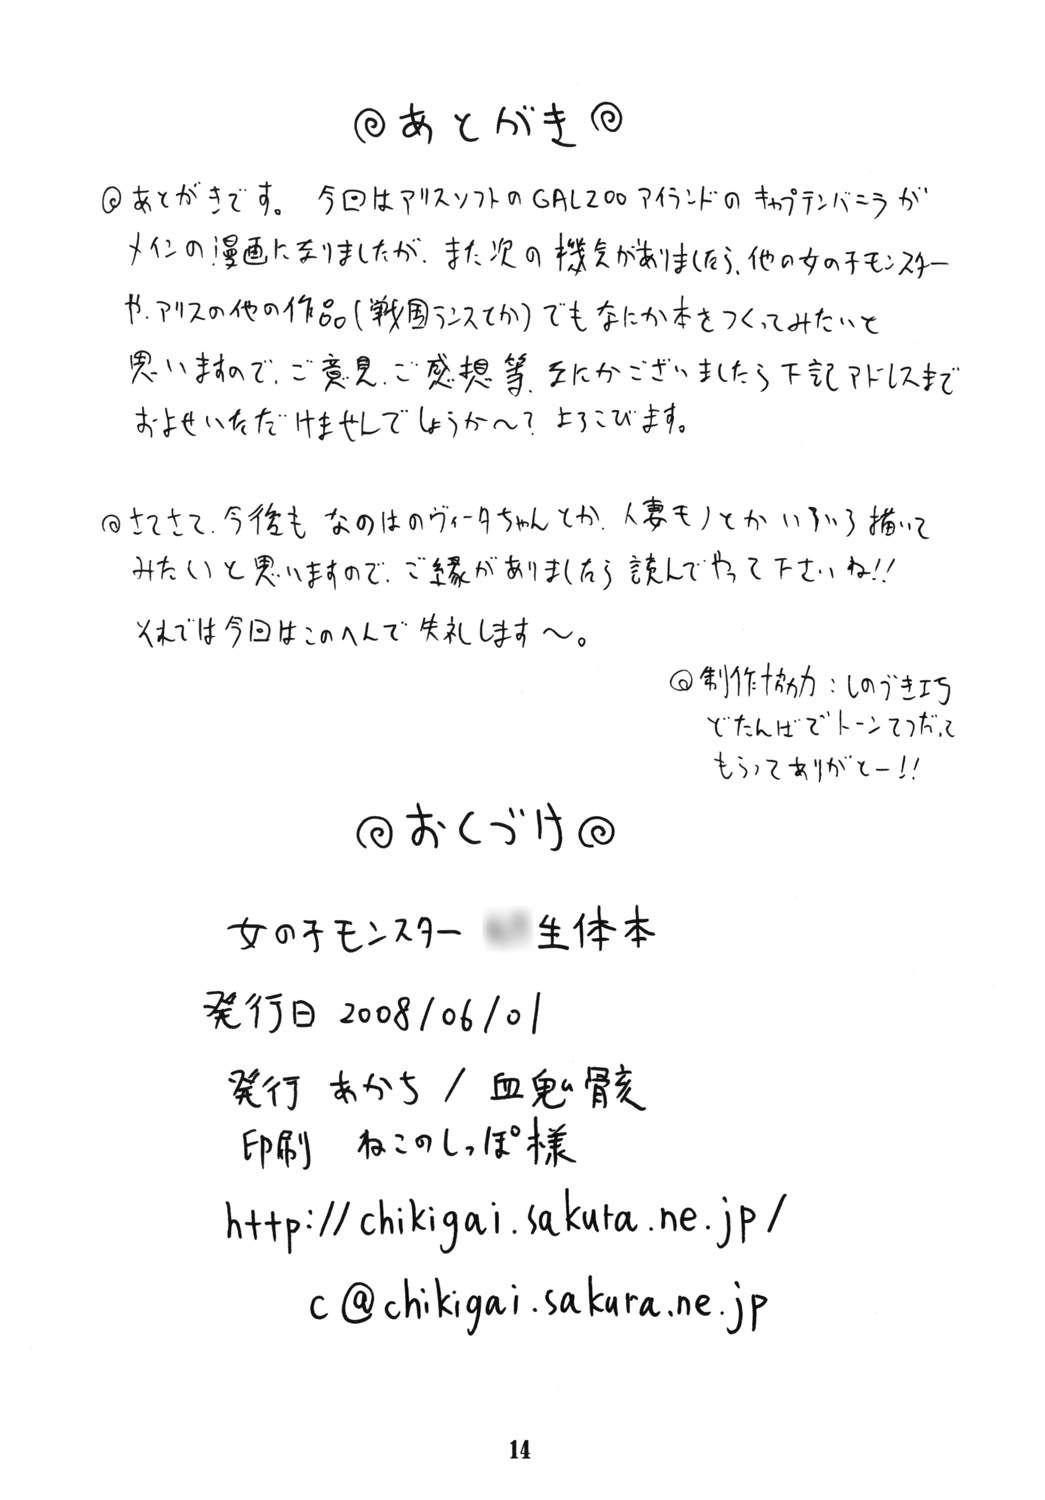 あとがき
あとがきです。 今回はアリスソフトのGALZOOアイランドのキャプテンバニラが
メインの漫画になりましたが、また次の機会がありましたら、他の女の子モンスター
や、アリスの他の作品(戦国ランスとか)でもなにか本をつくってみたいと
思いますので、ご意見、ご感想等、なにかございましたら下記アドレスまで
およせいただけませんでしょうか〜? よろこびます。
さてさて、今後も なのはのヴィータちゃんとか、人妻モノとかいろいろ描いて
みたいと思いますので、ご縁がありましたら読んでやって下さいね!!
それでは今回はこのへんで失礼します〜。
制作協力:しのづき巧
どたんばでトーンてつだって
もらってありがとー!!
おくづけ
女の子モンスター 生体本
発行日 2008/06/01
発行 あかち / 血鬼の骨亥
印刷 ねこのしっぽ様
http://chikigai.sakura.ne.jp/
c@chikigai.sakura.ne.jp
14